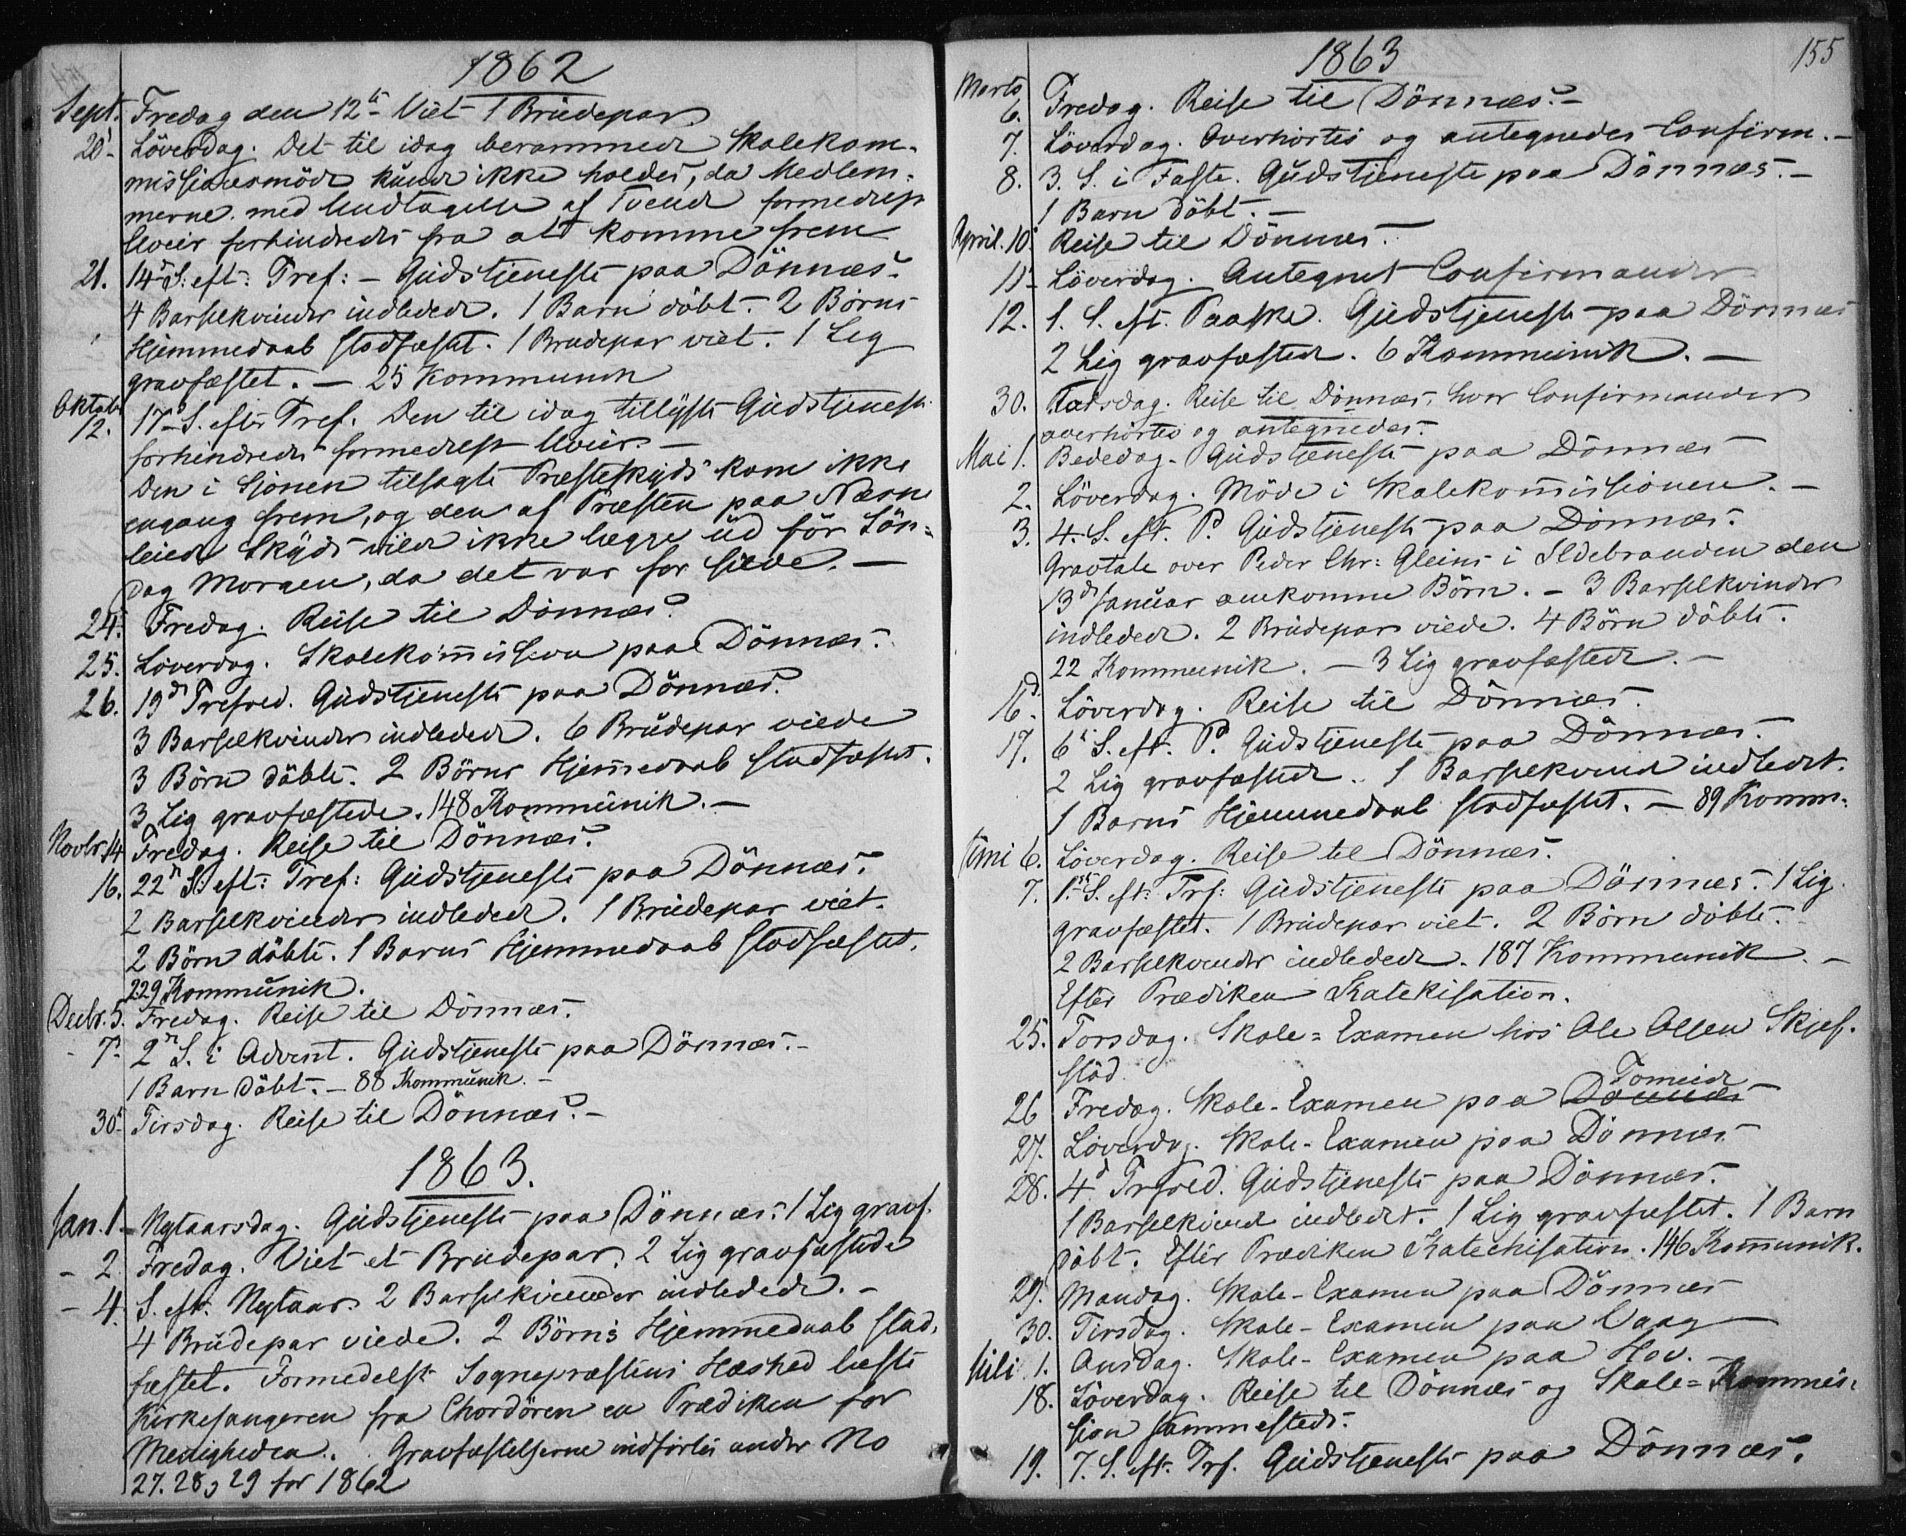 1862
Sept. Fredag den 12te Viet 1 Brüdepar
20. Löverdag. Det til idag berammede Skolekom-
missionsmöde kunde ikke holdes, da Medlem-
merne med Undtagelse af Tvende formedelst
Uveir forhindredes fra at komme frem
21. 14de S. eft: Tref: – Gudstjeneste paa Dönnæs.
4 Barselkvinder indledede. 1 Barn döbt. 2 Börns
Hjemmedaab stadfæstet. 1 Brudepar viet. 1 Lig
gravfæstet. – 25 Kommunik
Oktob. 12. 17de S. efter Tref. Den til idag tillyste Gudstjeneste
forhindredes formedelst Uveir. –
Den i Sjonen tilsagte Præsteskyds kom ikke
engang frem, og den af Præsten paa Næsne
leiede Skyds vilde ikke lægge ud för Sön-
dag Morgen, da det var for silde. –
24. Fredag. Reise til Dönnæs.
25. Löverdag. Skolekommission paa Dönnæs.
26. 19de Trefred. Gudstjeneste paa Dönnæs.
3 Barselkvinder indledede. 6 Brudepar viede
3 Börn döbte. 2 Börns Hjemmedaab stadfæstet.
3 Lig gravfæstede. 148 Kommunik. –
Novbr. 14 Fredag. Reise til Dönnæs.
16. 22n S. eft: Tref: Gudstjeneste paa Dönnæs.
2 Barselkvinder indledede. 1 Brudepar viet.
2 Börn döbte. 1 Barns Hjemmedaab stadfæstet.
229 Kommunik.
Decbr. 5. Fredag. Reise til Dönnæs.
- 7. 2n S. i Advent. Gudstjeneste paa Dönnæs. –
1 Barn döbt. – 88 Kommunik. –
30. Tirsdag. Reise til Dönnæs. –
1863.
Jan. 1 – Nytaarsdag. Gudstjeneste paa Dönnæs. 1 Lig gravf.
– 2 Fredag. Viet et Brudepar. 2 Lig gravfæstede
– 4. S. eft. Nytaar. 2 Barselkvinder indledede. –
4 Brudepar viede. 2 Börns Hjemmedaab stad-
fæstet. Formedelst Sognepræstens Hæshed læste
Kirkesangeren fra Chordören en Prædiken for
Menigheden. Gravfæstelserne indförtes under No
27. 28, 29 for 1862
155
1863
Marts
6. Fredag. Reise til Dönnæs. –
7. Löverdag. Overhörtes og antegnedes Confirm. –
8. 3. S. i Faste. Gudstjeneste paa Dönnæs. –
1 Barn döbt. –
April. 10 Reise til Dönnæs.
11 Löverdag. Antegnet Confirmander
12. 1. S. eft. Paaske. Gudstjeneste paa Dönnæs
2 Lig gravfæstede. 6 Kommunik. –
30. Torsdag. Reise til Dönnæs, hvor Confirmander
overhörtes og antegnedes.
Mai 1. Bededag. Gudstjeneste paa Dönnæs
2. Löverdag. Möde i Skolekommissionen. –
3. 4. S. eft. P. Gudstjeneste paa Dönnæs.
Gravtale over Peder Chr: Gleins i Ildebranden den
13de Januar omkomne Börn. – 3 Barselkvinder
indledede. 2 Brudepar viede. 4 Börn döbte.
22 Kommunik. – 3 Lig gravfæstede. –
16. Löverdag. Reise til Dönnæs.
17. 6te S. eft. P. Gudstjeneste paa Dönnæs.
2 Lig gravfæstede. 1 Barselkvinde indledet.
1 Barns Hjemmedaab stadfæstet. – 89 Komm.
Juni 6. Löverdag. Reise til Dönnæs.
7. 1ste S. eft: Trf: Gudstjeneste paa Dönnæs. 1 Lig
gravfæstet. 1 Brudepar viet. 2 Börn döbte.
2 Barselkvinder indledede. 187 Kommunik. –
Efter Prædiken Katekisation.
25. Torsdag. Skole-Examen hos Ole Olsen Skjef-
stöd.
26 Fredag. Skole-Examen paa Dönnæs Tomeide
27. Löverdag. Skole-Examen paa Dönnæs
28. 4d Trfred. Gudstjeneste paa Dönnæs.
1 Barselkvinde indledet. 1 Lig gravfæstet. 1 Barn
döbt. Efter Prædiken Katechisation. 146 Kommunik.
29. Mandag. Skole-Examen paa Dönnæs
30. Tirsdag. Skole-Examen paa Vaag
Juli 1. Onsdag. Skole-Examen paa Hov. –
18. Löverdag. Reise til Dönnæs og Skole-Kommis-
sion sammesteds.
19. 7. S. eft. Trf. Gudstjeneste paa Dönnæs.